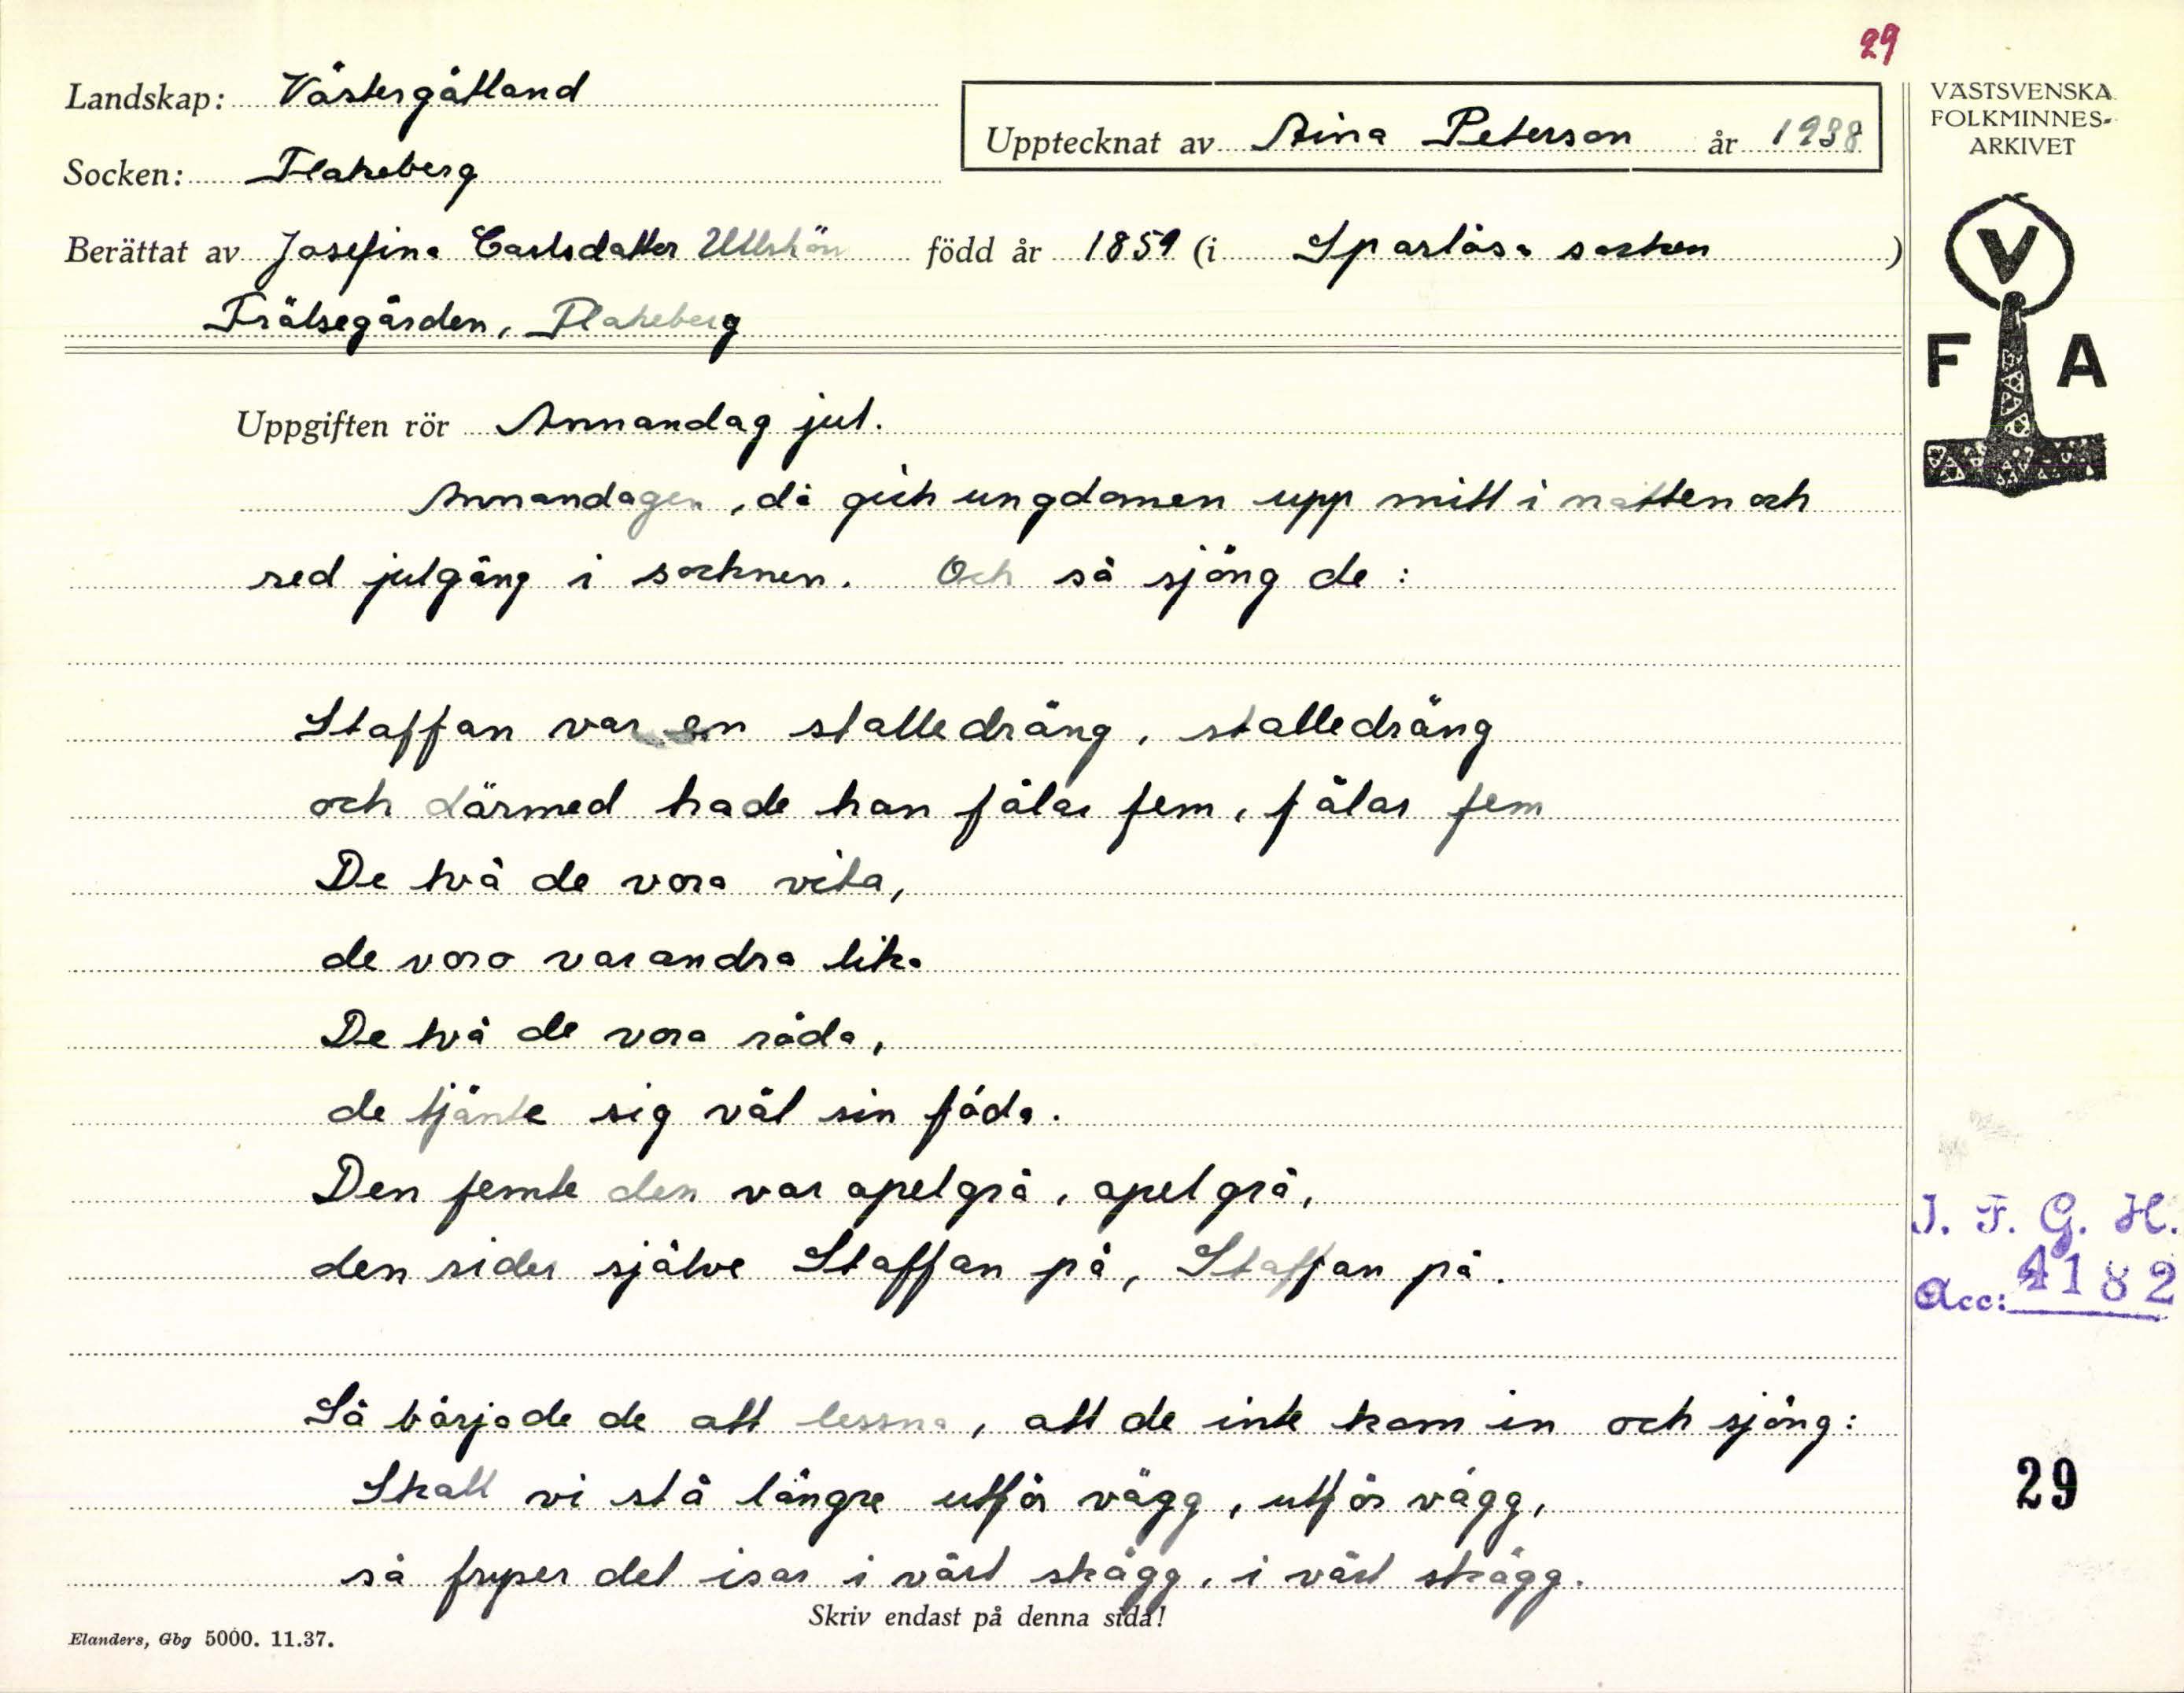 29
Landskap: Västergötland
Upptecknat av Aina Peterson år 1938
VÄSTSVENSKA
FOLKMINNES-
ARKIVET
Socken: Flakeberg
Berättat av Josefina Carlsdotter Ullskön född år 1859 (i Sparlösa socken)
Frälsegården, Flakeberg
V
F A
Uppgiften rör Annandag jul.
Annandagen, då gick ungdomen upp mitt i natten och
red julgång i socknen. Och så sjöng de:
Staffan var en stalledräng, stalledräng
och därmed hade han fålar fem, fålar fem
De två de voro vita,
de voro varandra lika
De två de voro röda,
de tjänte sig väl sin föda.
Den femte den var apelgrå, apelgrå,
den rider själve Staffan på, Staffan på.
I. F. G. H.
Acc: 4182
Så började de att lessna, att de inte kom in och sjöng:
Skall vi stå längre utför vägg, utför vägg,
29
så fryser det isar i vårt skägg, i vårt skägg.
Skriv endast på denna sida!
Elanders, Gbg 5000. 11.37.